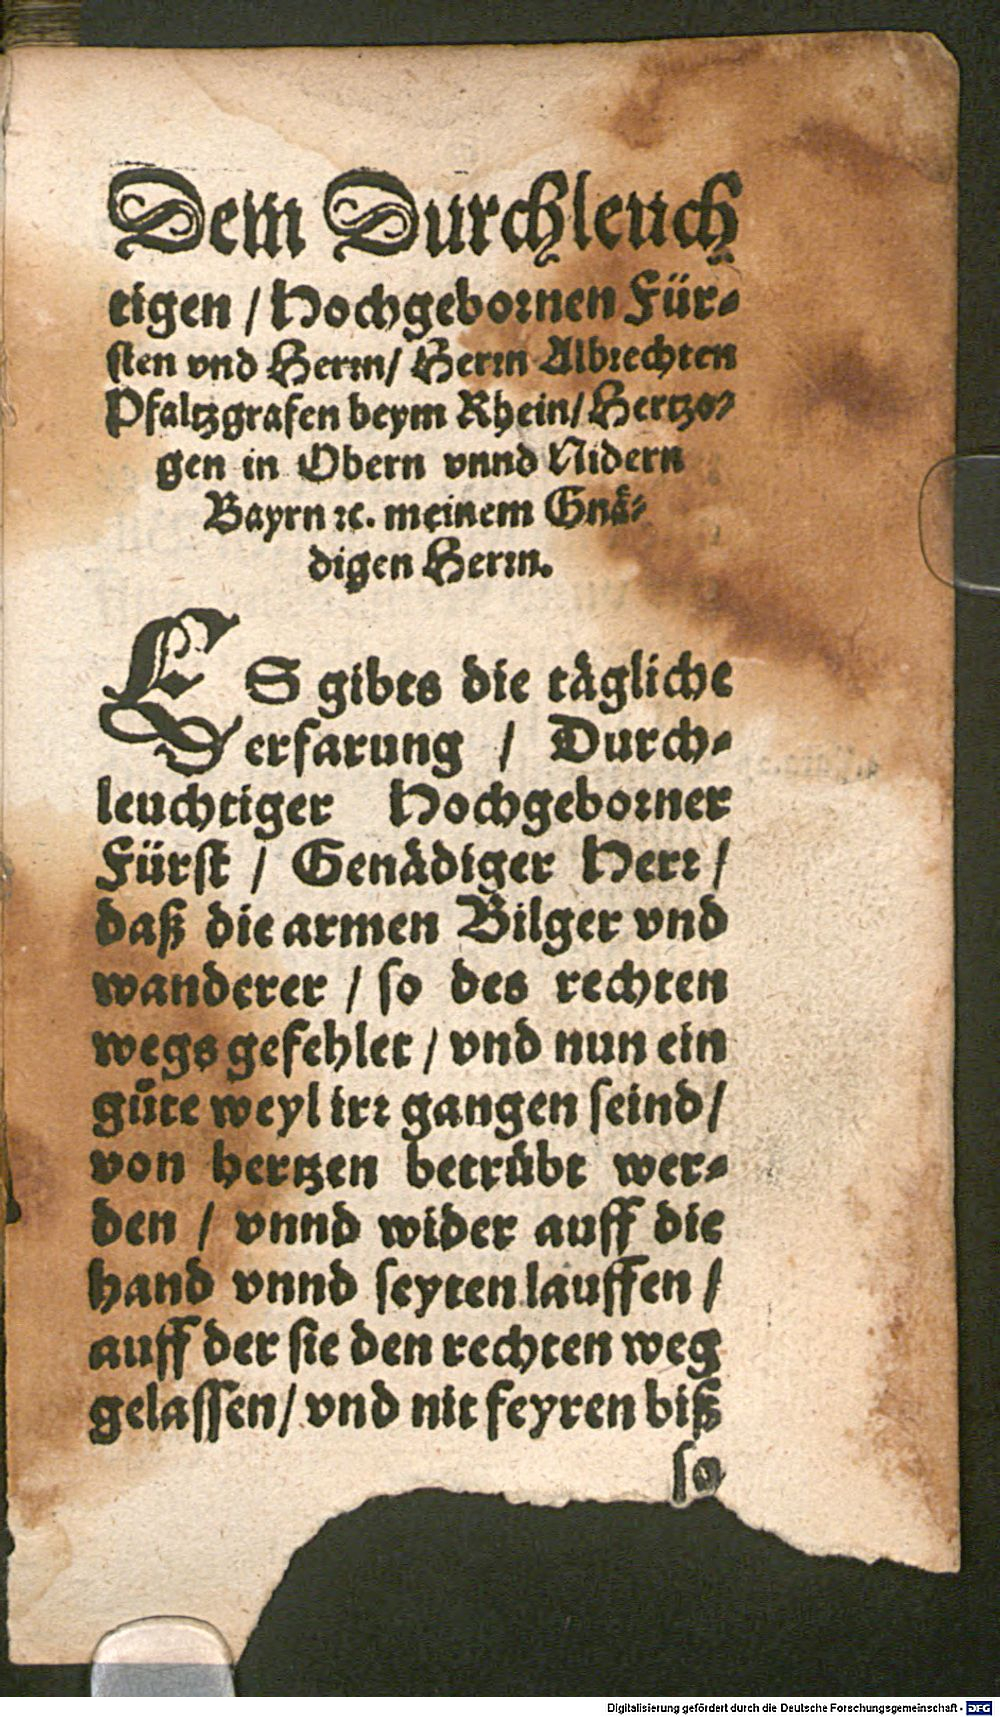 Dem Durchleuch
tigen / Hochgebornen Für-
sten vnd Herrn / Herrn Albrechten
Pfaltzgrafen beym Rhein / Hertzo-
gen in Obern vnnd Nidern
Bayrn ꝛc. meinem Gnaͤ-
digen Herrn.
ES gibts die taͤgliche
erfarung / Durch-
leuchtiger Hochgeborner
Fürst / Genaͤdiger Herr /
daß die armen Bilger vnd
wanderer / so des rechten
wegs gefehlet / vnd nun ein
guͤte weyl irr gangen seind /
von hertzen betrübt wer-
den / vnnd wider auff die
hand vnnd seyten lauffen /
auff der sie den rechten weg
gelassen / vnd nit feyren biß
so
Digitalisierung gefördert durch die Deutsche Forschungsgemeinschaft - DFG